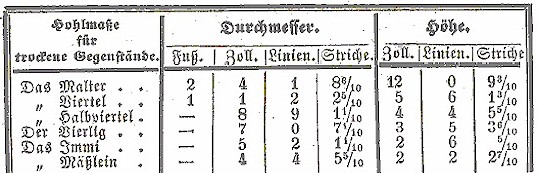 Hohlmaße für trockene Gegenstände. | Durchmesser. | Höhe.
Fuß. | Zoll. | Linien. | Striche. | Zoll. | Linien. | Striche
Das Malter . . 2 4 1 8⁶/₁₀ 12 0 9³/₁₀
„ Viertel . . 1 1 2 2⁵/₁₀ 5 6 1³/₁₀
„ Halbviertel . — 8 9 1¹/₁₀ 4 4 5⁵/₁₀
Der Vierlig . . — 7 0 7¹/₁₀ 3 5 3⁶/₁₀
Das Immi . . — 5 2 1¹/₁₀ 2 6 ⁵/₁₀
„ Mäßlein . — 4 4 5⁵/₁₀ 2 2 2⁷/₁₀